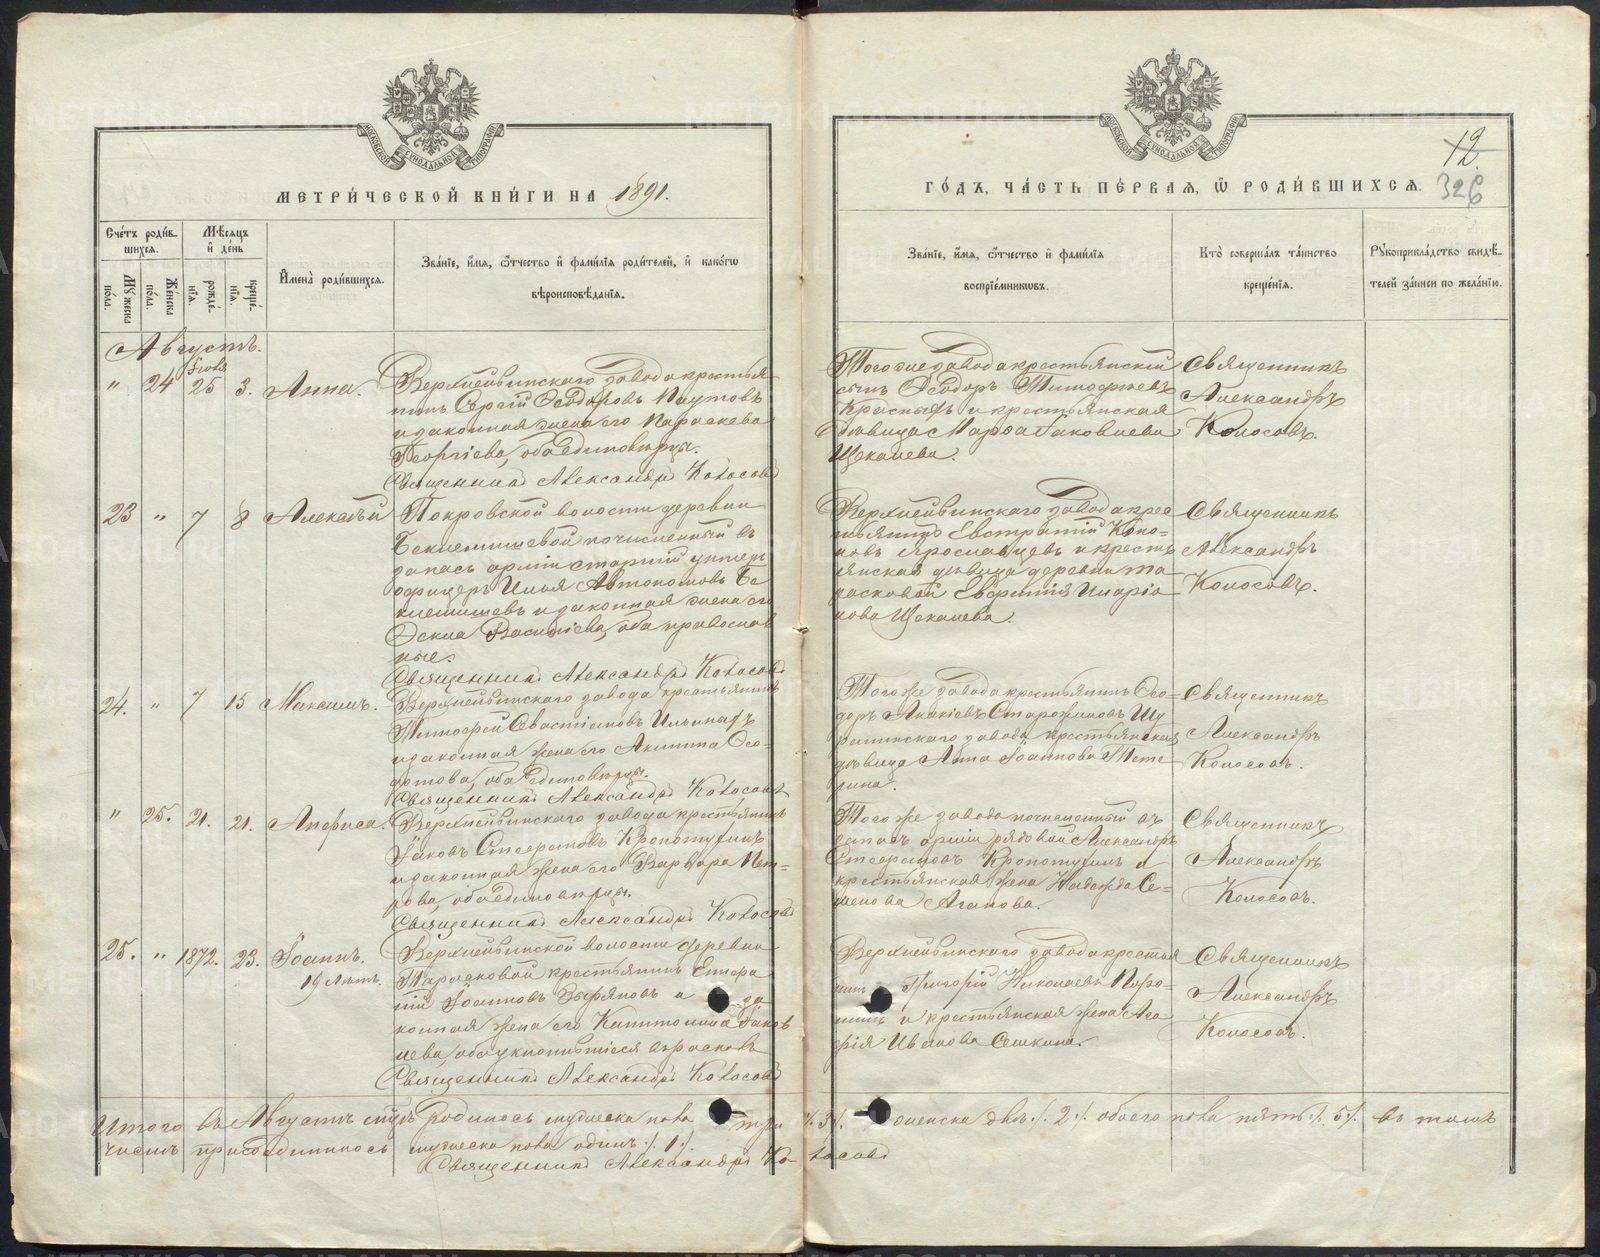 МЕТРИ́ЧЕСКОЙ КНИ́ГИ НА 1891.
Сче́тъ роди́в-
шихся.
Мѣ́сяцъ
и҆ де́нь
Му́жеска
по́ла.
Же́нска
по́ла.
рожде́-
нїѧ.
креще́-
нїѧ.
И҆мена̀ роди́вшихся.
Зва́нїе, и҆́мѧ, ѻ҆́тчество и҆ фами́лїѧ роди́телей, и҆ како́гѡ
вѣроисповѣ́данїѧ.
Августъ.
Іюля
" 24 25 3. Анна.
Верхнейвинскаго завода крестья-
нинъ Сергій Ѳеодоровъ Паутовъ
и законная жена его Параскева
Георгіева, оба Единовѣрцы.
Священникъ Александръ Колосовъ
23 " 7 8 Алексѣй
Покровской волости деревни
Бекленищевой почисленный въ
запасъ арміи старшій унтеръ
офицеръ Илья Автономовъ Бе
кленищевъ и законная жена его
Ѳекла Васильева, оба православ
ные.
Священникъ Александръ Колосовъ
24. " 7 15 Максимъ.
Верхнейвинскаго завода крестьянинъ
Тимофей Савастіановъ Ильиныхъ
и законная жена его Акилина Ѳео-
дотова, оба Единовѣрцы.
Священникъ Александръ Колосовъ
" 25. 21. 21. Анфиса.
Верхнейвинскаго завода крестьянинъ
Іаковъ Стефановъ Кропотухинъ
и законная жена его Варвара Пет-
рова, оба Единовѣрцы.
Священникъ Александръ Колосовъ
25. " 1872. 23. Іоаннъ.
19 лѣтъ.
Верхнейвинской волости деревни
Тарасковой крестьянинъ
Іоанновъ Зыряновъ и за
конная жена его Капитолина Іаков
лева, оба уклонившіеся въ расколъ
Священникъ Александръ Колосовъ
Итого въ Августѣ мцѣ родилось мужеска пола три /.3/. женска двѣ /. 2 /. обоего пола пять /. 5 /. въ томъ
числѣ присоединилось мужеска пола одинъ /. 1 /.
Священникъ Александръ Колосовъ
ГО́ДЪ, ЧА́СТЬ ПЕ́РВАѦ, Ѽ РОДИ́ВШИХСѦ.
12.
326
Зва́нїе, и҆́мѧ, ѻ҆́тчество и҆ фами́лїѧ
воспрїе́мниковъ.
Кто̀ соверша́лъ та́инство
креще́нїѧ.
Рукоприкла́дство свидѣ́-
телей за́писи по жела́нїю.
Тогоже завода крестьянскій
сынъ Ѳеодоръ Тимофеевъ
Красныхъ и крестьянская
дѣвица Марѳа Іаковлева
Щекалева.
Священникъ
Александръ
Колосовъ.
Верхнейвинскаго завода крес
тьянинъ Евстратій Коно-
новъ Ярославцевъ и кресть
янская дѣвица деревни Та
расковой Евфимія Иларіо
нова Щекалева.
Священникъ
Александръ
Колосовъ.
Того же завода крестьянинъ Ѳео-
доръ Акакіевъ Старожиловъ Шу
ралинскаго завода крестьянская
дѣвица Анна Іоаннова
Священникъ
Александръ
Колосовъ.
Того же завода почисленный въ
запасъ арміи рядовой Александръ
Стефановъ Кропотухинъ и
крестьянская жена Надежда Се-
менова Агапова.
Священникъ
Александръ
Колосовъ.
Верхнейвинскаго завода крестья
нинъ Григорій Николаевъ
и крестьянская жена Ага
фія Иванова Сешкина.
Священникъ
Александръ
Колосовъ.